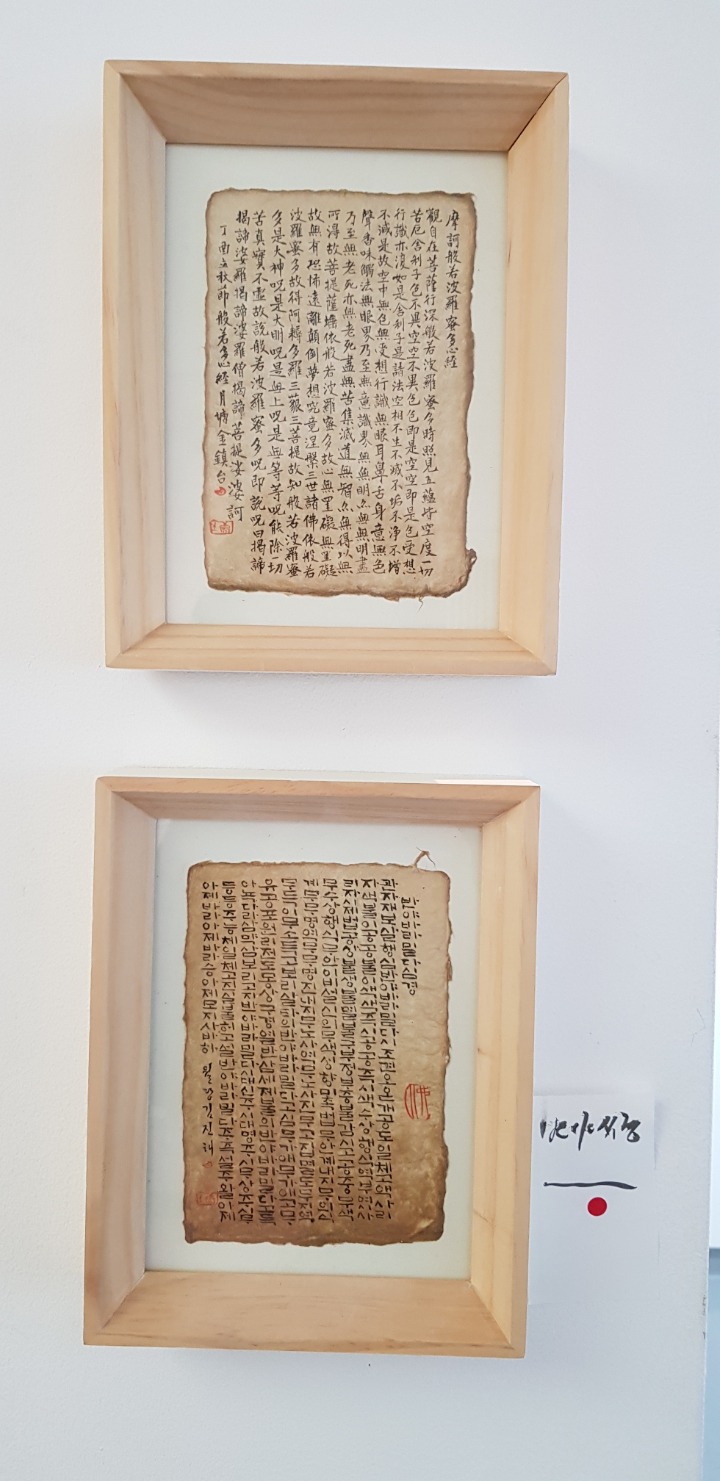 摩訶般若波羅蜜多心経
觀自在菩薩行深般若波羅蜜多時照見五蘊皆空度一切
苦厄舍利子色不異空空不異色色即是空空即是色受想
行識亦復如是舍利子是諸法空相不生不滅不垢不浄不增
不減是故空中無色無受想行識無眼耳鼻舌身意無色
聲香味觸法無眼界乃至無意識界無無明亦無無明盡
乃至無老死亦無老死盡無苦集滅道無智亦無得以無
所得故菩提薩埵依般若波羅蜜多故心無罣礙無罣礙
故無有恐怖遠離顛倒夢想究竟涅槃三世諸佛依般若
波羅蜜多故得阿耨多羅三藐三菩提故知般若波羅蜜
多是大神呪是大明呪是無上呪是無等等呪能除一切
苦真實不虛故說般若波羅蜜多呪即說呪曰揭諦
揭諦婆羅揭諦婆羅僧揭諦菩提娑婆訶
丁酉立秋節般若多心経月塘金鎮台
반야바라밀다심경
관자재보살행심반야바라밀다시조견오온개공도일체고액사리
자색불이공공불이색색즉시공공즉시색수상행식역부여시사
리자시제법공상불생불멸불구부정부증불감시고공중무색
무수상행식무안이비설신의무색성향미촉법무안계내지무의식
계무무명역무무명진내지무노사역무노사진무고집멸도무지역
무득이무소득고보리살타의반야바라밀다고심무가애무가애고무
유공포원리전도몽상구경열반삼세제불의반야바라밀다고득
아뇩다라삼먁삼보리고지반야바라밀다시대신주시대명주시무상주시무
등등주능제일체고진실불허고설반야바라밀다주즉설주왈아제
아제바라아제바라승아제모지사바하 월당김진태
반야심경